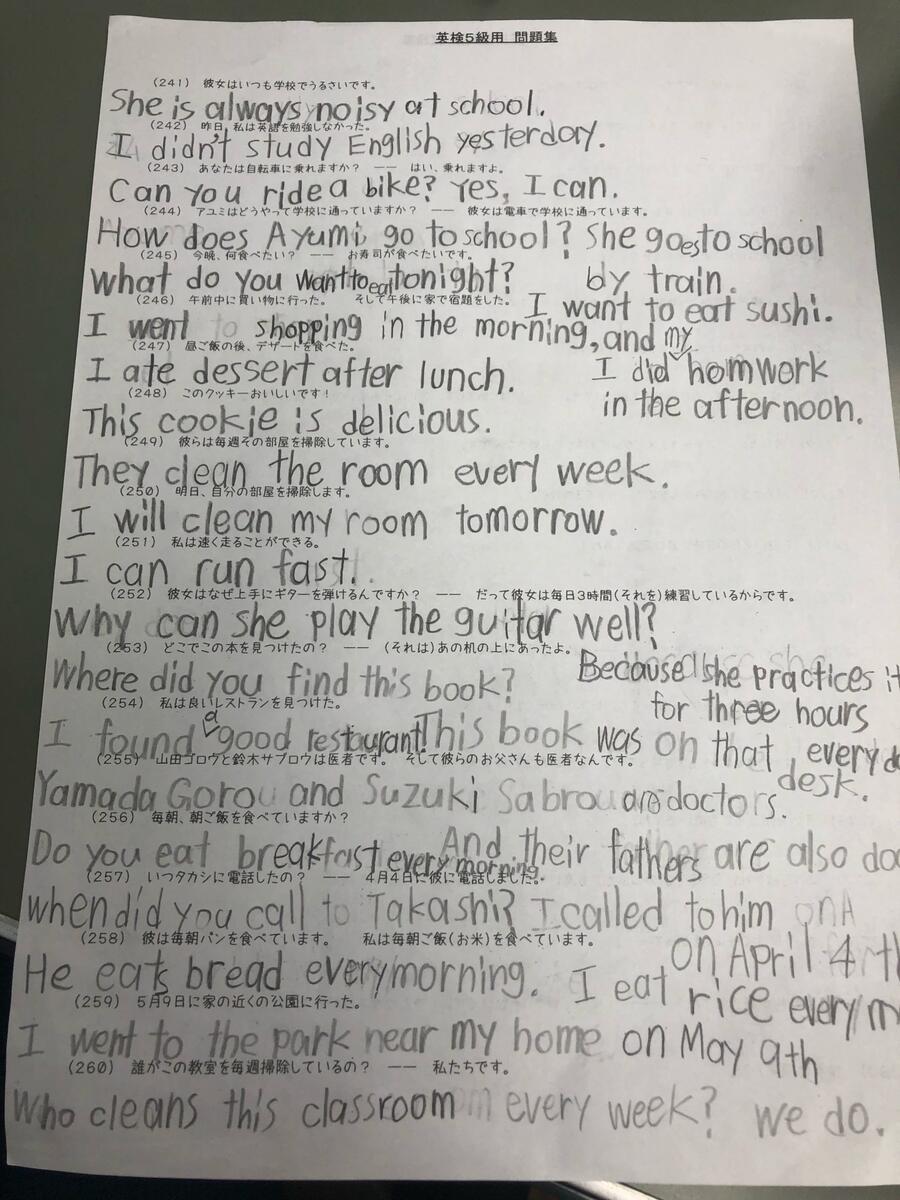 英検5級用 問題集
(241) 彼女はいつも学校でうるさいです。
She is always noisy at school.
(242) 昨日、私は英語を勉強しなかった。
I didn't study English yesterday.
(243) あなたは自転車に乗れますか? —— はい、乗れますよ。
Can you ride a bike? Yes, I can.
(244) アユミはどうやって学校に通っていますか? —— 彼女は電車で学校に通っています。
How does Ayumi go to school? She goes to school
by train.
(245) 今晩、何食べたい? —— お寿司が食べたいです。
What do you want to eat tonight?
I want to eat sushi.
(246) 午前中に買い物に行った。 そして午後に家で宿題をした。
I went shopping in the morning, and
I did my homwork
in the afternoon.
(247) 昼ご飯の後、デザートを食べた。
I ate dessert after lunch.
(248) このクッキーおいしいです!
This cookie is delicious.
(249) 彼らは毎週その部屋を掃除しています。
They clean the room every week.
(250) 明日、自分の部屋を掃除します。
I will clean my room tomorrow.
(251) 私は速く走ることができる。
I can run fast.
(252) 彼女はなぜ上手にギターを弾けるんですか? —— だって彼女は毎日3時間(それを)練習しているからです。
Why can she play the guitar well?
Because she practices it
for three hours
(253) どこでこの本を見つけたの? —— (それは)あの机の上にあったよ。
Where did you find this book?
This book was on that
desk.
(254) 私は良いレストランを見つけた。
I found a good restaurant.
(255) 山田ゴロウと鈴木サブロウは医者です。 そして彼らのお父さんも医者なんです。
Yamada Gorou and Suzuki Sabrou are doctors.
And their fathers are also
(256) 毎朝、朝ご飯を食べていますか?
Do you eat breakfast every morning.
(257) いつタカシに電話したの? —— 4月4日に彼に電話しました。
When did you call Takashi? I called to him
on April 4
(258) 彼は毎朝パンを食べています。 私は毎朝ご飯(お米)を食べています。
He eats bread every morning. I eat
rice every
(259) 5月9日に家の近くの公園に行った。
I went to the park near my home on May 9th
(260) 誰がこの教室を毎週掃除しているの? —— 私たちです。
Who cleans this classroom every week? We do.